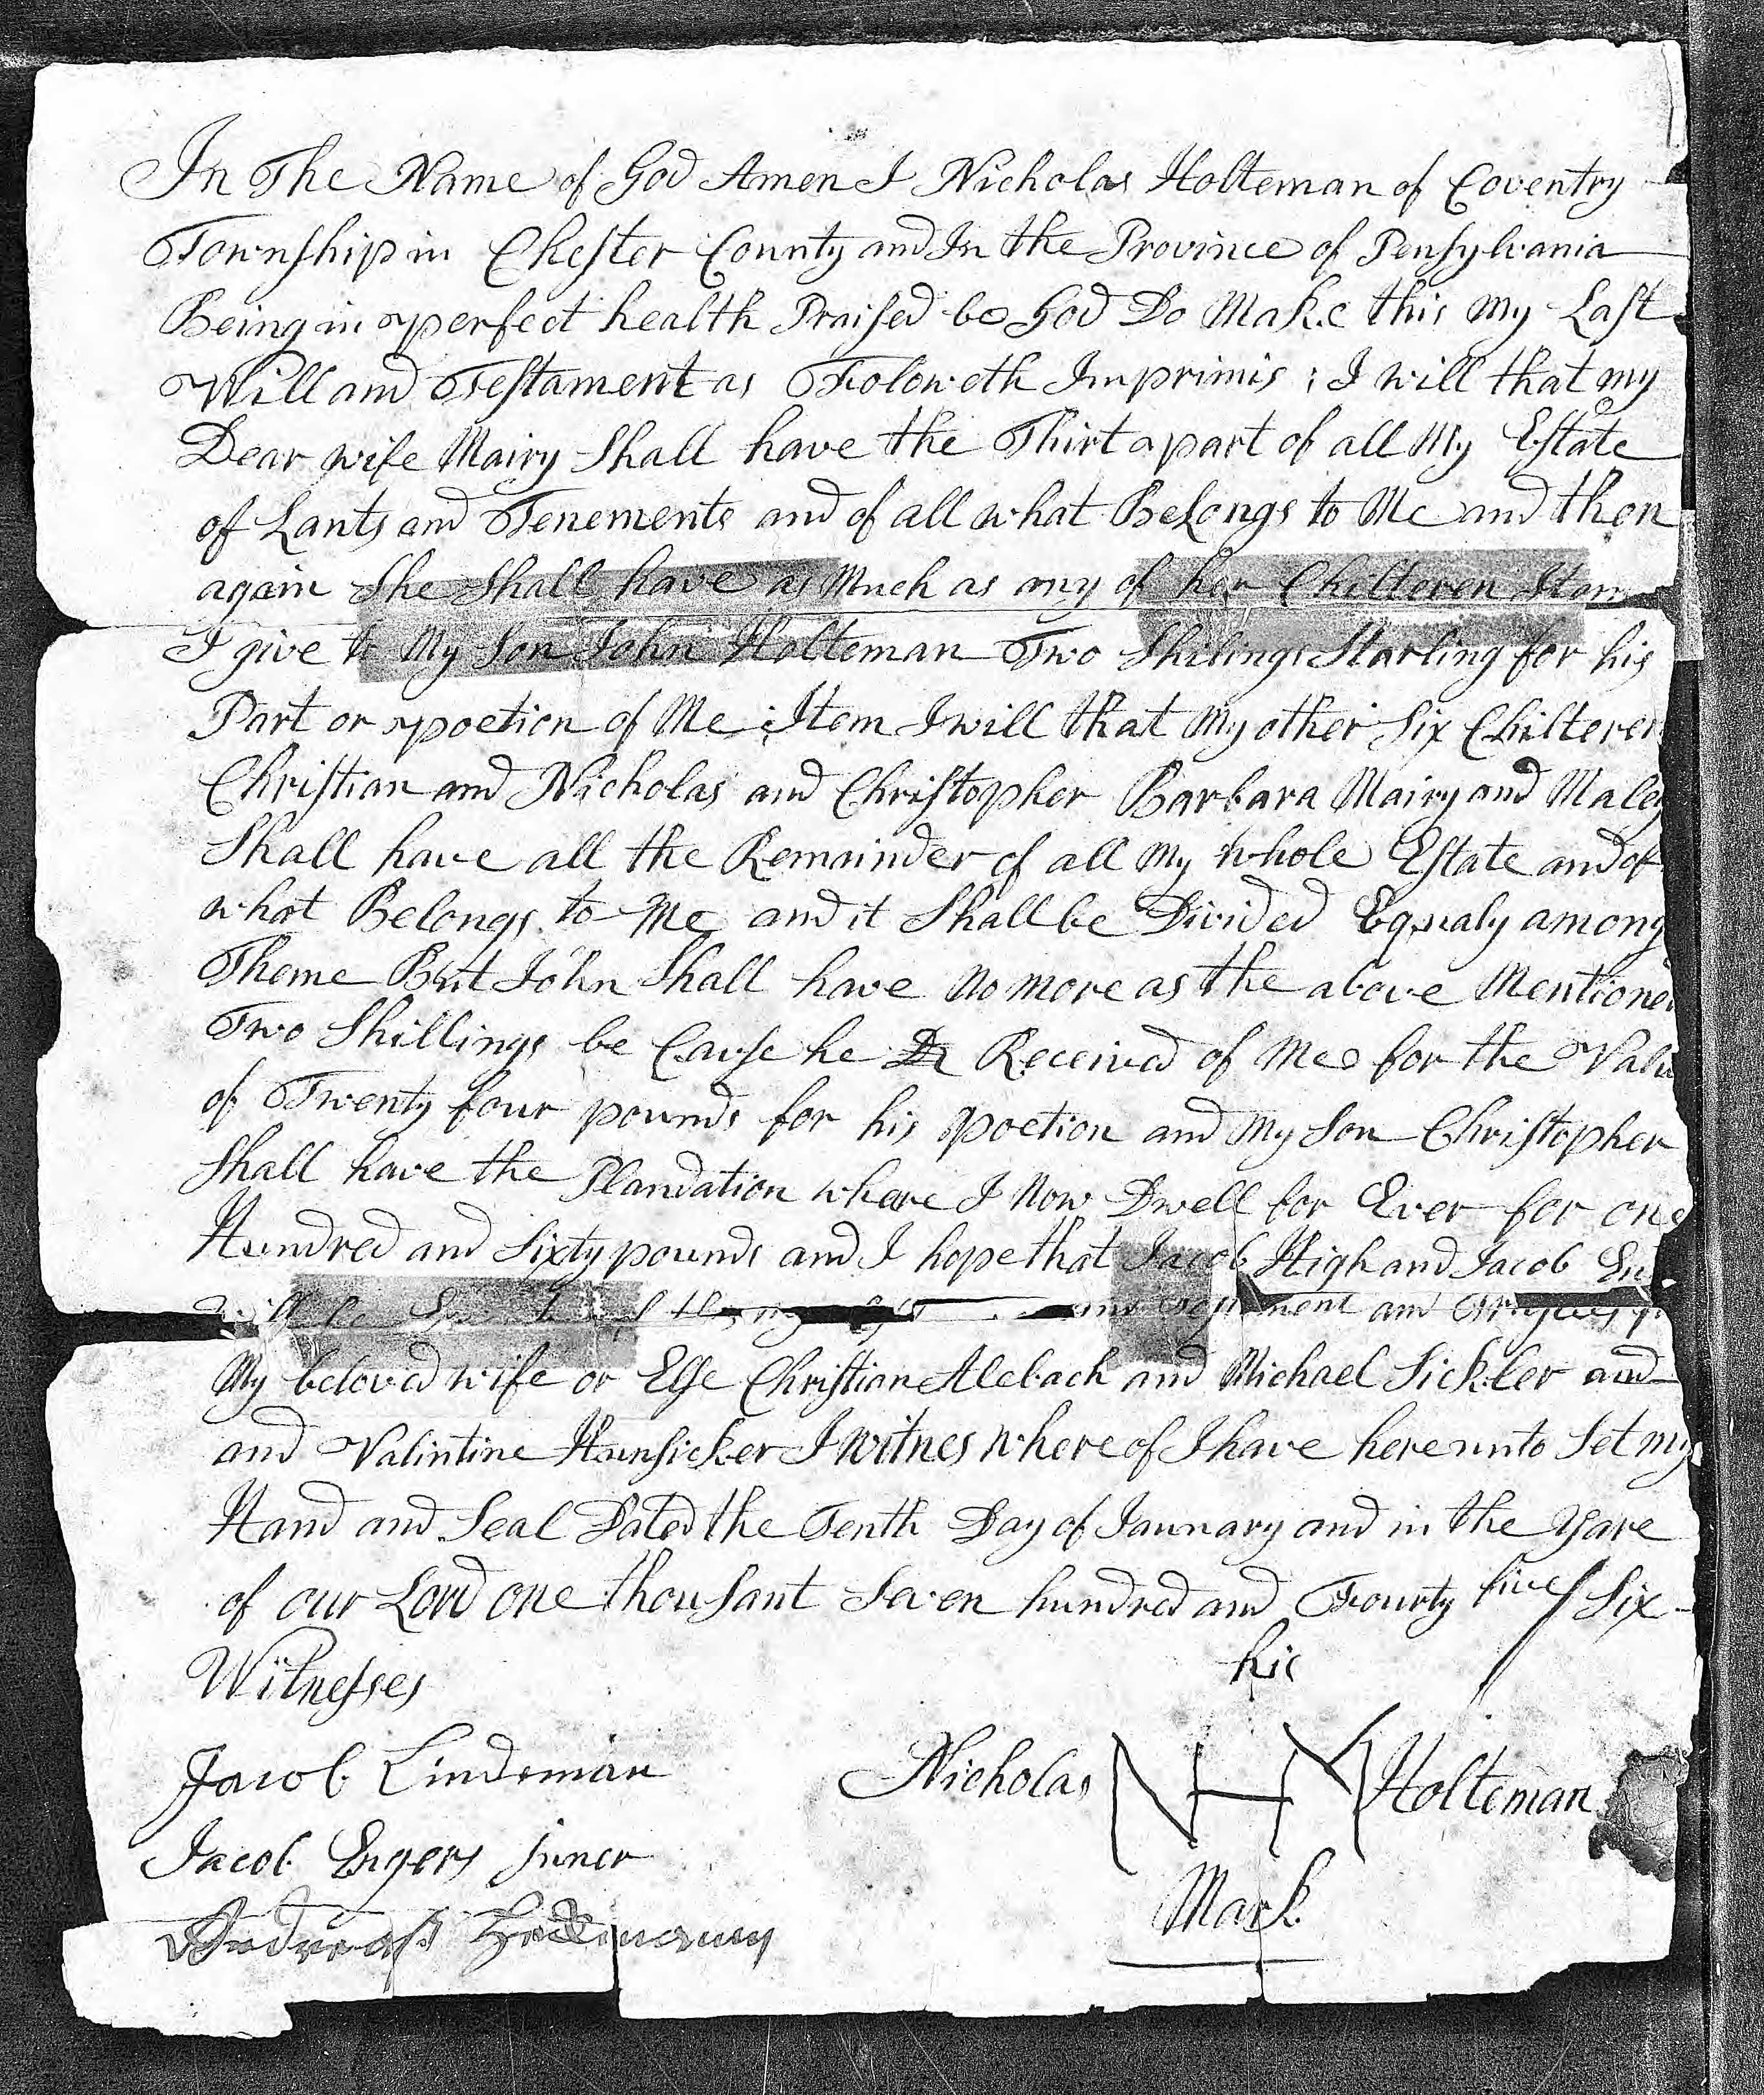 In The Name of God Amen I Nicholas Holteman of Coventry
Township in Chester County and In the Province of Pensylvania
Being in perfect health Praised be God Do Make this my Last
Will and Testament as Foloweth Imprimis ; I will that my
Dear wife Mairy Shall have the Thirt part of all My Estate
of Lants and Tenements and of all what Belongs to Me and then
again She Shall have as Much as any of her Chilteren Item
I give to My Son John Holteman Two Shilings Starling for his
Part or poetion of Me ; Item I will that My other Six Chilteren
Christian and Nicholas and Christopher Barbara Mairy and
Shall have all the Remainder of all my whole Estate and of
what Belongs to Me and it Shall be Divided Equaly among
Theme But John Shall have No more as the above Mentioned
Two Shillings be Cause he Received of Me for the Value
of Twenty four pounds for his poetion and My Son Christopher
Shall have the Plandation where I Now Dwell for Ever for one
Hundred and Sixty pounds and I hope that Jacob High and Jacob
and
My beloved wife or Else Christian Alebach and Michael Sickler and
and Valintine Hunsicker I witnes where of I have here unto Set my
Hand and Seal Dated the Tenth Day of Jannary and in the Yare
of our Lord one thousant Seven hundred and Fourty five/Six
his
Witnesses
Jacob Lindeman
Nicholas NHM Holteman
Jacob Engers juner
Mark
Andreas